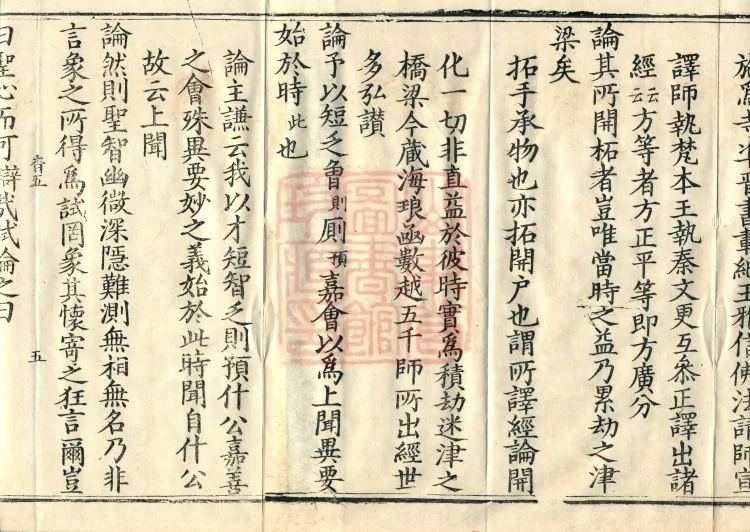 譯師執梵本王執秦文更互叅正譯出諸
經云云方等者方正平等即方廣分
論其所開柘者豈唯當時之益乃累劫之津
梁矣
拓手承物也亦拓開户也謂所譯經論開
化一切非直益於彼時實爲積劫迷津之
橋梁今蔵海琅函數越五千師所出經世
多弘讃
論予以短乏曾則厠預嘉會以爲上聞異要
始於時此也
論主謙云我以才短智乏則預什公嘉善
之會殊異要妙之義始於此時聞自什公
故云上聞
論然則聖智幽微深隱難測無相無名乃非
言象之所得爲試罔象其懷寄之狂言爾豈
五
曰聖心而可辯哉試論之曰